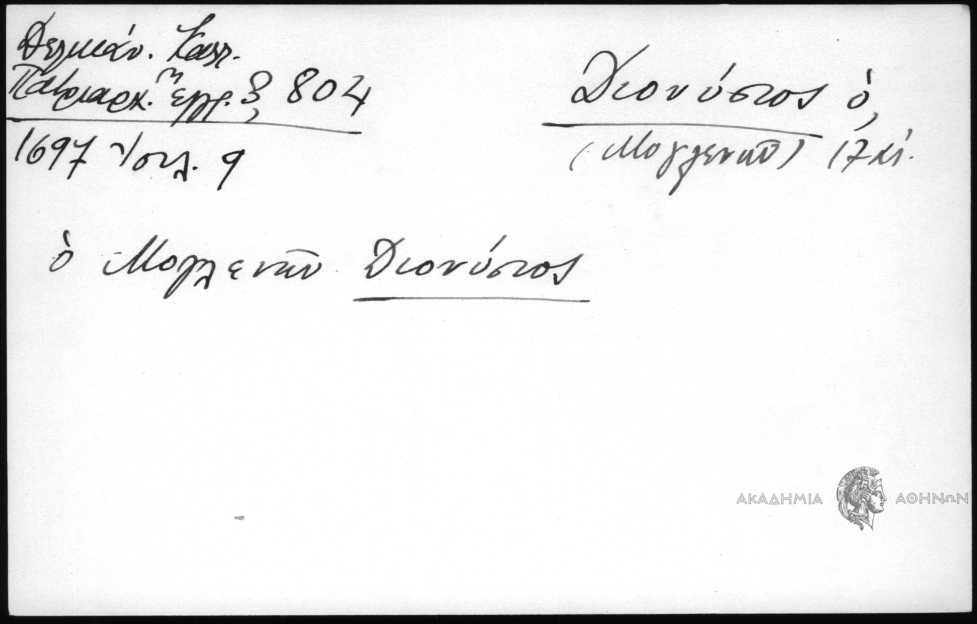 Δελικάν. Κατ.
Πατριαρχ. ἐγγρ. 3, 804
1697 Ἰουλ. 9
Διονύσιος ὁ,
(Μογλενῶν) 17 αἰ.
ὁ Μογλενῶν Διονύσιος
ΑΚΑΔΗΜΙΑ ΑΘΗΝΩΝ